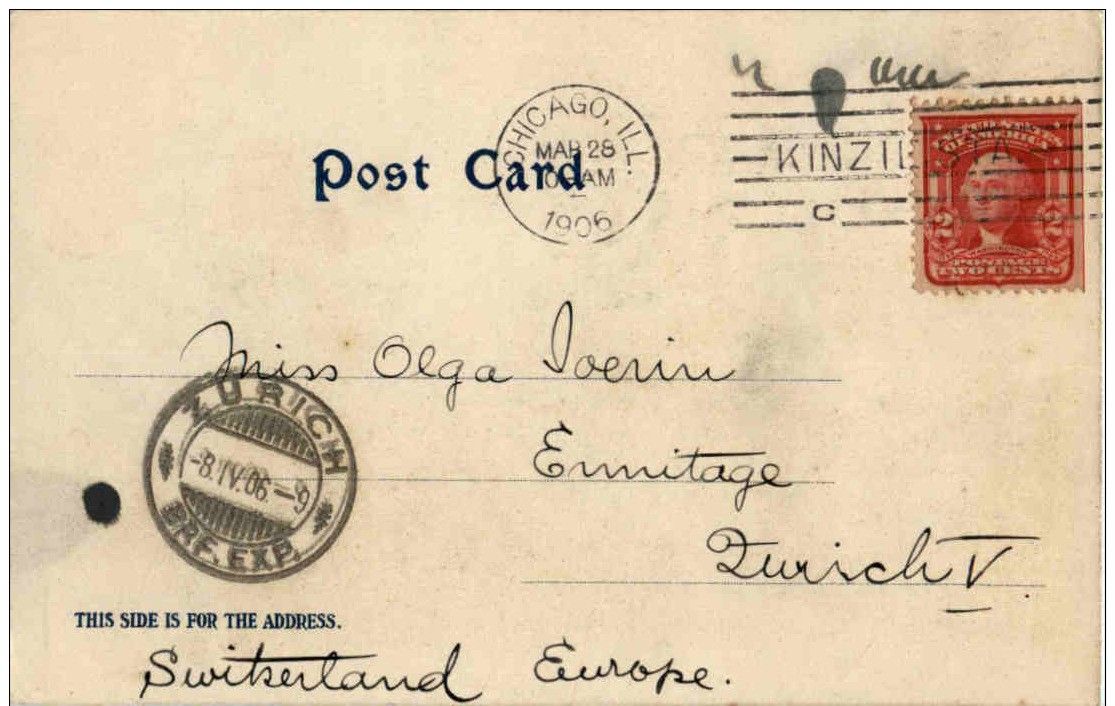 CHICAGO, ILL.
MAR 28
AM
1906
KINZIE STA.
C
2 2
POSTAGE
TWO CENTS
Post Card
Miss Olga
Ermitage
Zurich V
ZÜRICH
-8.IV.06.-9
BRF. EXP.
THIS SIDE IS FOR THE ADDRESS.
Switzerland Europe.